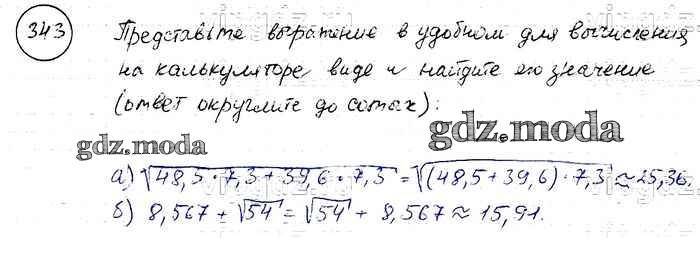 343
Представьте выражение в удобном для вычисления
на калькуляторе виде и найдите его значение
(ответ округлите до сотых):
gdz.moda
gdz.moda
а) √48,5 · 7,3 + 39,6 · 7,3 = √(48,5 + 39,6) · 7,3 ≈ 25,36.
б) 8,567 + √54 = √54 + 8,567 ≈ 15,91.